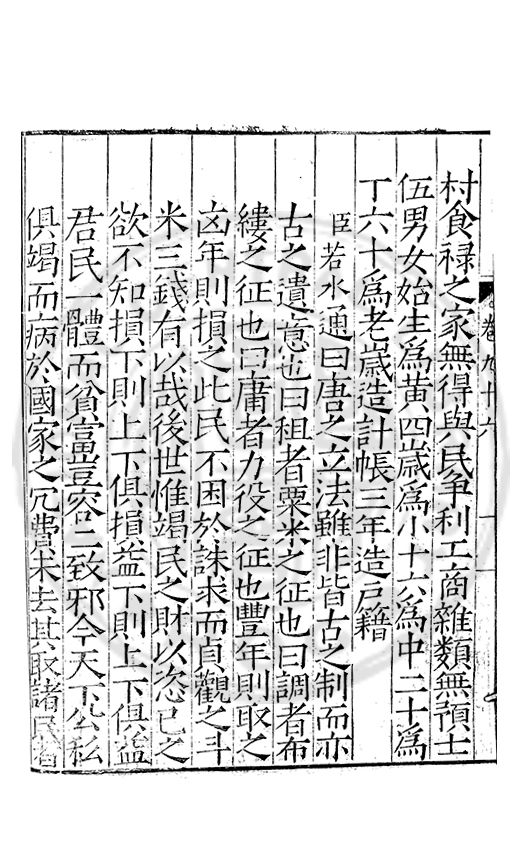 卷九十六
村食禄之家無得與民爭利工商雜類無預士
伍男女始生爲黃四歲爲小十六爲中二十爲
丁六十爲老歲造計帳三年造戶籍
臣若水通曰唐之立法雖非皆古之制而亦
古之遺意也曰租者粟米之征也曰調者布
縷之征也曰庸者力役之征也豐年則取之
凶年則損之此民不困於誅求而貞觀之斗
米三錢有以哉後世惟竭民之財以恣己之
欲不知損下則上下俱損益下則上下俱益
君民一體而貧富豈容二致邪今天下公私
俱竭而病於國家之冗費未去其取諸民者